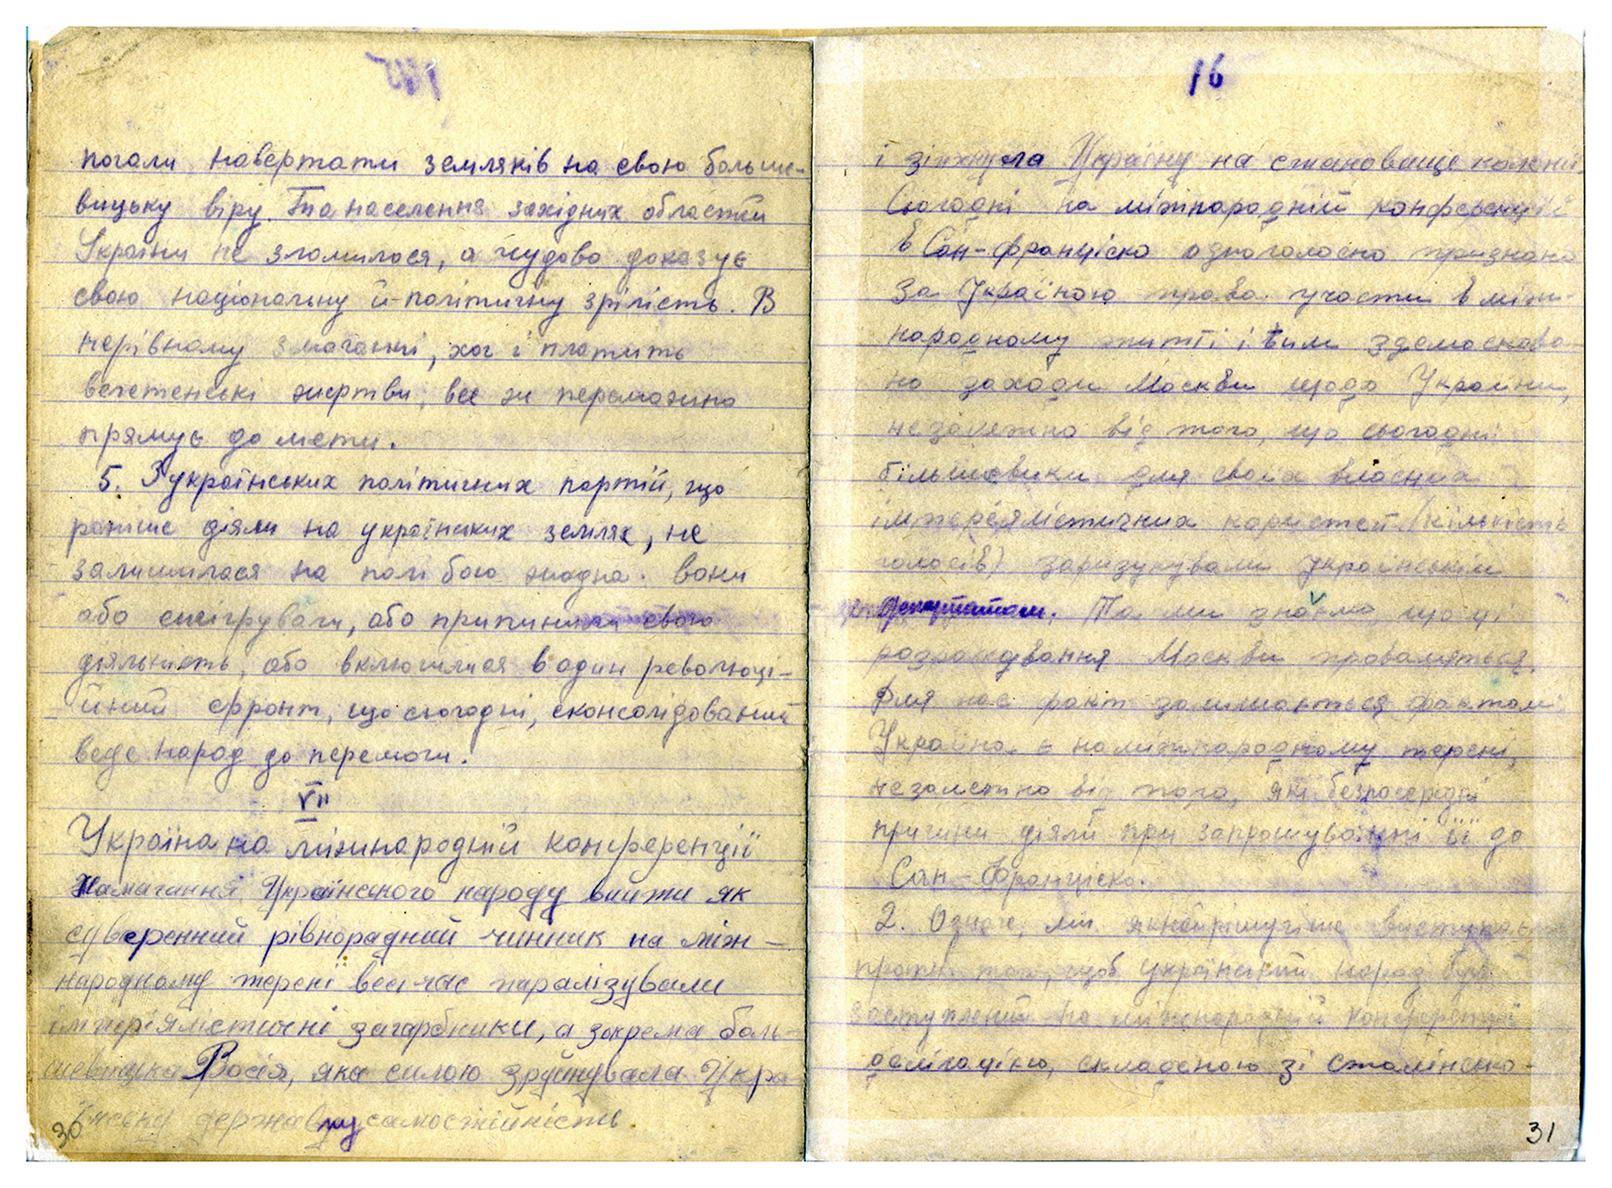 почали навертати земляків на свою больше-
вицьку віру. Та населення західних областей
України не зломилося, а чудово доказує
свою національну й політичну зрілість. В
нерівному змаганні, хоч і платить
велетенські жертви, все ж переможно
прямує до мети.
5. З українських політичних партій, що
раніше діяли на українських землях, не
залишилася на полі бою жодна. Вони
або еміґрували, або припинили свою
діяльність, або включилися в один революці-
йний фронт, що сьогодні, сконсолідований
веде народ до перемоги.
VII
Україна на міжнародній конференції
Намагання Українського народу вийти як
суверенний рівнорядний чинник на між-
народному терені весь час паралізували
імперіялістичні загарбники, а зокрема боль-
шевицька Росія, яка силою зруйнувала Укра-
їнську державну самостійність
30
16
і зіпхнула Україну на становище колонії.
Сьогодні на міжнародній конференції
в Сан-Франціско одноголосно признано
за Україною право участи в між-
народному житті і тим здемасковано
но заходи Москви щодо України,
незалежно від того, що сьогодні
більшовики для своїх власних
імперіялістичних користей (кількість
голосів) заризикували українським
депутатом. Та ми знаємо, що ці
розраховування Москви проваляться.
Для нас факт залишається фактом
Україна є на міжнародному терені,
незалежно від того, які безпосередні
причини діяли при запрошуванні її до
Сан-Франціско.
2. Одначе, ми якнайрішучіше виступаєм
проти того, щоб український народ був
заступлений на міжнародній конференції
делігацією, складеною зі сталінсько-
31